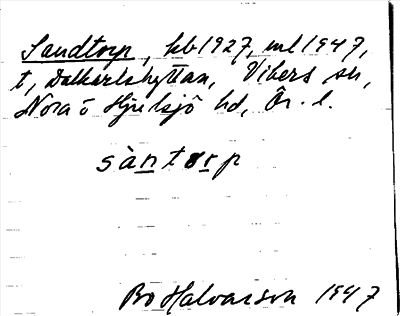 Sandtorp, kb 1927, ml 1947,
t, Dalkarlshyttan, Vikers sn,
Nora o Hjulsjö hd, Ör. l.
sàntorp
Bo Halvarson 1947